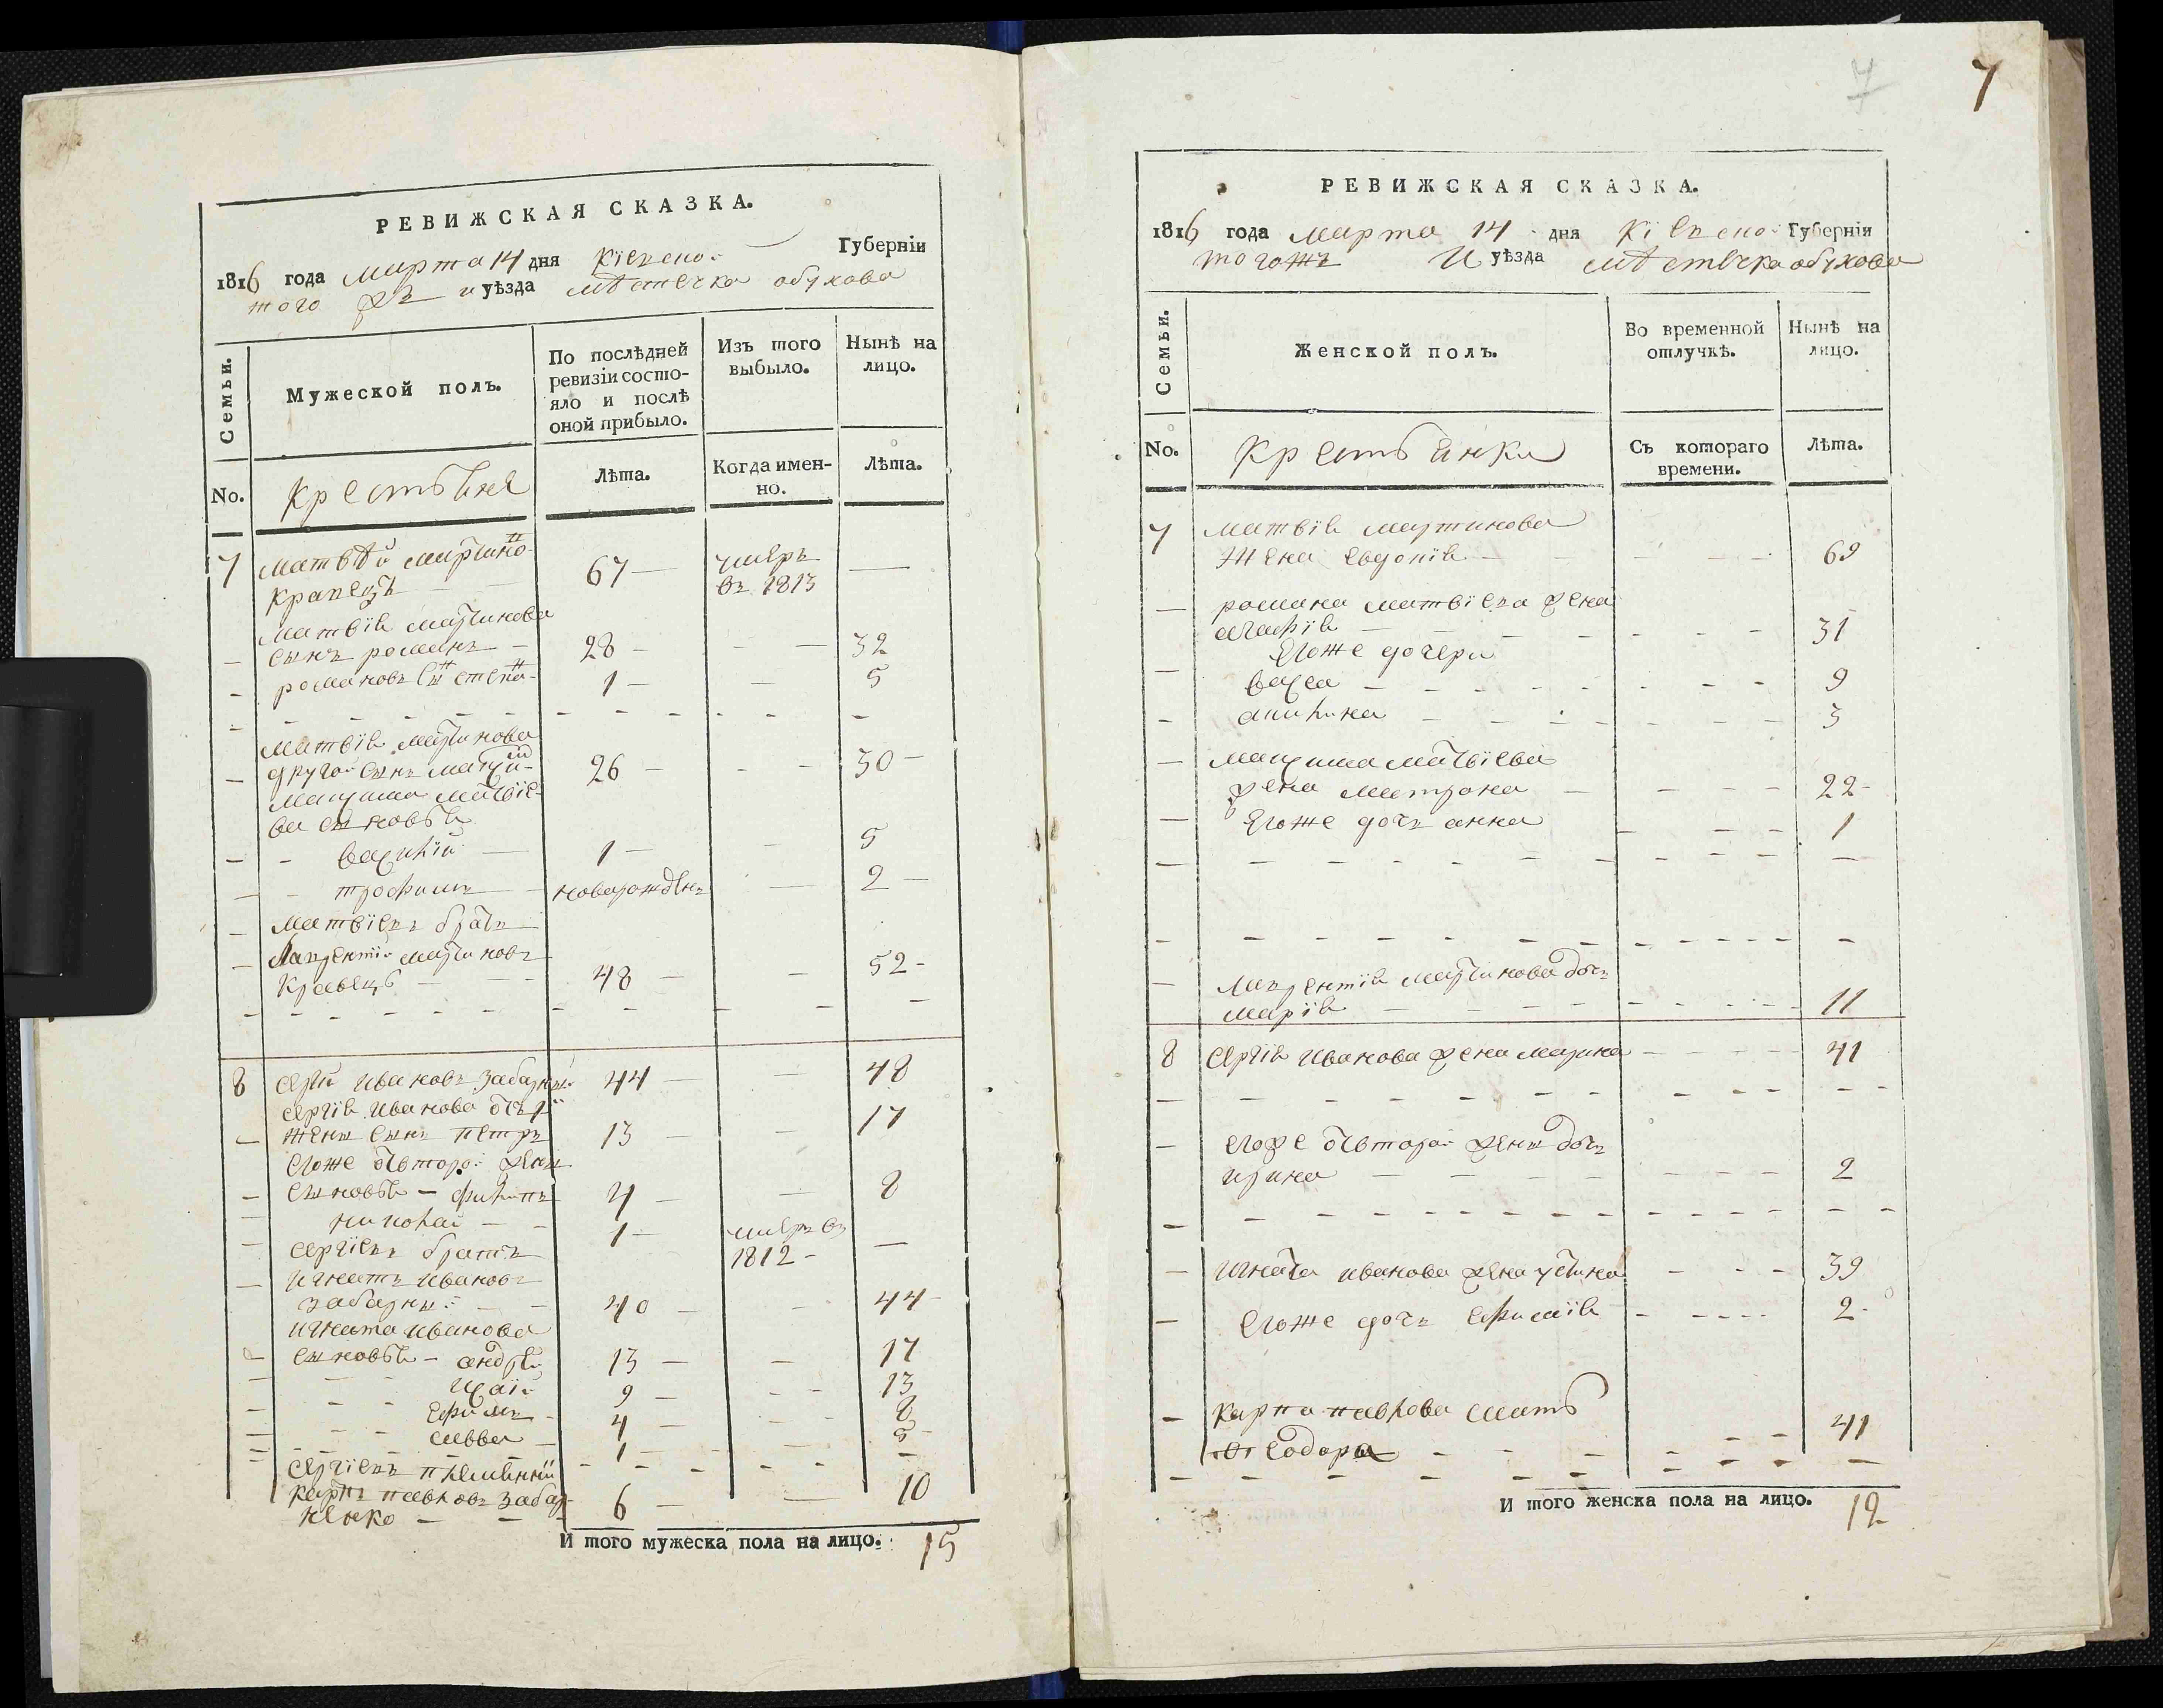 РЕВИЖСКАЯ СКАЗКА.
1816 года марта 14 дня Кіевской Губерніи
того жъ и уѣзда мѣстечка обухова
Семьи.
Мужеской полъ.
По послѣдней ревизіи состо-яло и послѣ оной прибыло.
Изъ того выбыло.
Нынѣ на лицо.
No.
Крестьяне
Лѣта.
Когда имен-но.
Лѣта.
7 матвѣй мартино
кравецъ 67 — умеръ въ 1813 —
матвія мартинова
— сынъ романъ — 28 — — — 32
— романовъ сынъ степа- 1 — — 5
матвія мартинова
— другой сынъ 26 — - - 30 —
матвіе-
ва сыновья
— - василій — 1 — - 5
— - трофимъ — новарожденъ — 2 —
— матвіевъ братъ —
— лаврентій мартиновъ
кравець — 48 — — 52 -
8 сергій ивановъ забарный 44 — — 48
сергія иванова отъ 1й
— жены сынъ петръ 13 — — 17
егоже отвторой жены
— сыновья — филипъ 4 — — 8
— николай — - 1 — умеръ въ 1812 - —
— сергіевъ братъ
— игнатъ ивановъ
забарный — - 40 — - 44 -
игната иванова
сыновья — андрей 13 — — 17
— - - 9 — - - 13
— - - ефимъ - 4 — - - 8
— - - савва — 1 — — 5 -
сергіевъ племянній
карпъ павловъ забар-
ненко — — - 6 — — 10
И того мужеска пола на лицо. 15
7
7
РЕВИЖСКАЯ СКАЗКА.
1816 года марта 14 дня Кіевской Губерніи
тогожъ И уѣзда мѣстечка обухова
Семьи.
Женской полъ.
Во временной отлучкѣ.
Нынѣ на лицо.
No.
Крестьянки
Съ котораго времени.
Лѣта.
7 матвія мартинова
жена евдокія — - — - - 69
— романа матвіева жена
агафія — - - - - - 31
егоже дочери
— васса — - - - - - - - 9
- акилина — - - - - - - 3
— матвіева
жена матрона — - - - 22 -
— егоже дочь анна — - - 1
— лаврентія мартинова дочь
марія — - - - - - - - 11
8 сергія иванова жена марина — - - - 41
— егоже отвторой жены дочь
ирина — - - - - - - 2
— игната иванова жена устина - - - 39
— егоже дочь ефимія - - - - - 2 -
— карпа павлова мать
феодора - - - - - 41
И того женска пола на лицо. 12